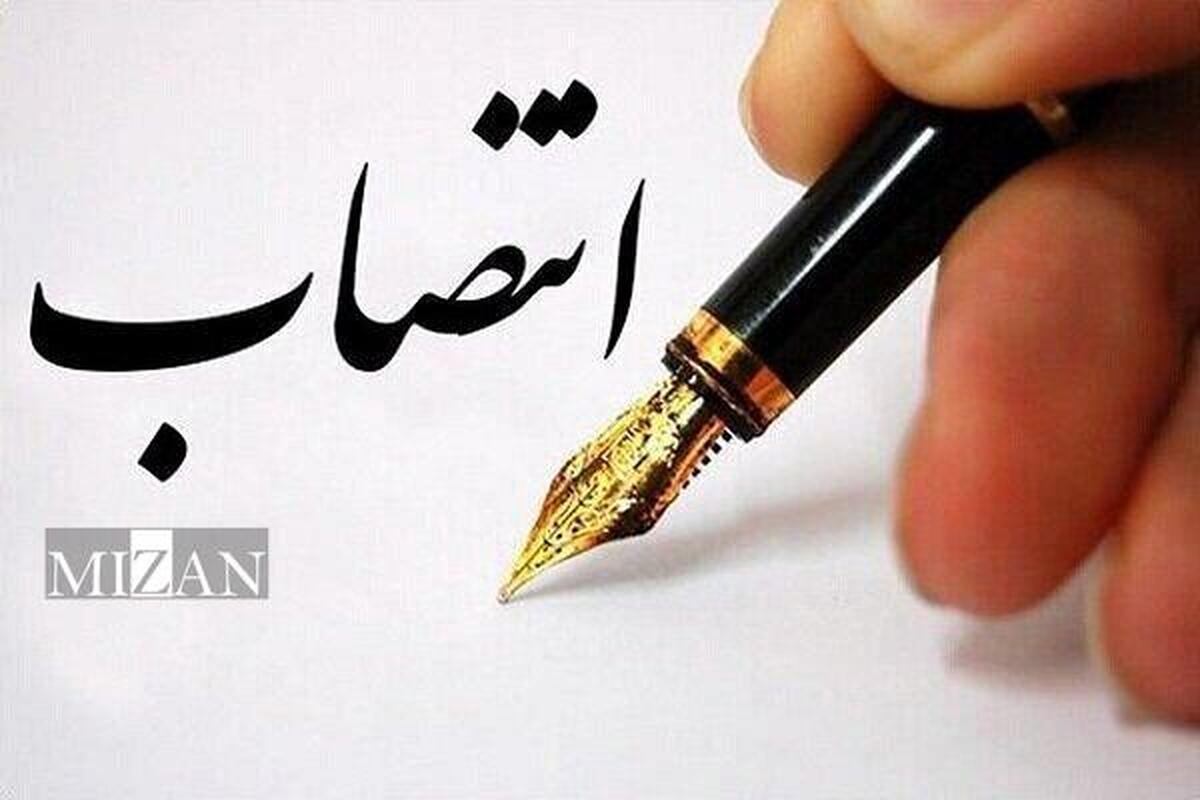 انتصاب
MIZAN